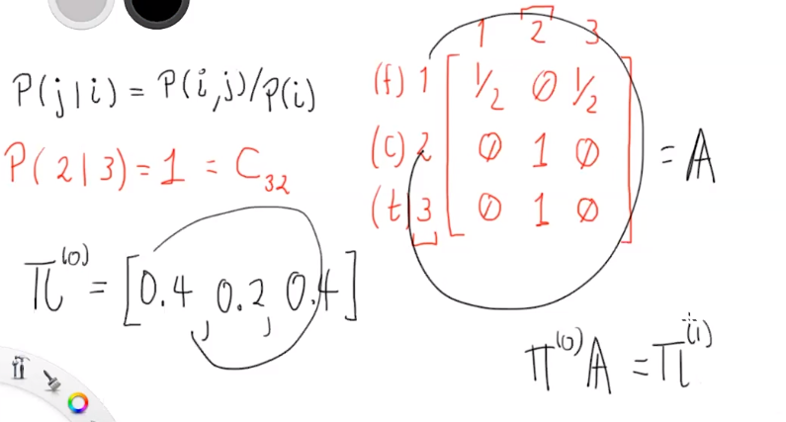 P(j|i) = P(i,j)/P(i)
P(2|3) = 1 = C₃₂
π⁽⁰⁾ = [0.4, 0.2, 0.4]
1 2 3
(f) 1 [ 1/2 0 1/2 ]
(C) 2 [ 0 1 0 ] = A
(t) 3 [ 0 1 0 ]
π⁽⁰⁾ A = π⁽¹⁾